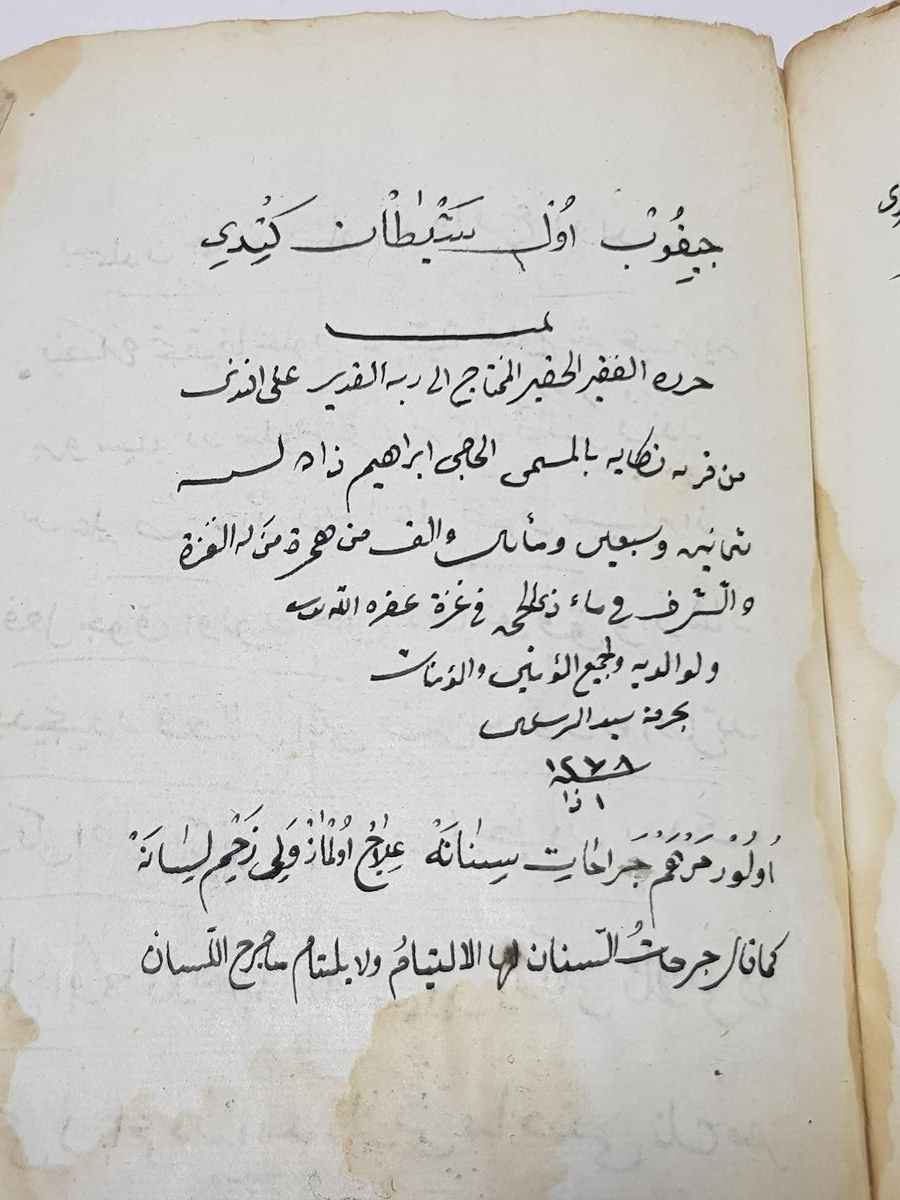 جيقوب اول شيطان كتدي
تمت
حرره الفقير الحقير المحتاج الى ربه القدير على افندى
من قريه بالمسمى الحاجى ابراهيم زاده لسنه
ثمانيه وسبعين ومأتين والف من هجرة من له العزة
والشرف فى ماه ذى الحجه فى غرة غفره الله له
ولوالديه ولجميع المؤمنين والمؤمنات
بحرمة سيد المرسلين
١٢٧٨
ذا ١
اُولُوْر مَرْهَمْ جَراحَاتِ سِنَانَهْ عِلاجْ اُولْمَازْ وَلِى زَخْمِ لِسَانَهْ
كما قال جرحاتُ السّنان لها الالتيامُ ولا يلتام ماجرح اللّسان